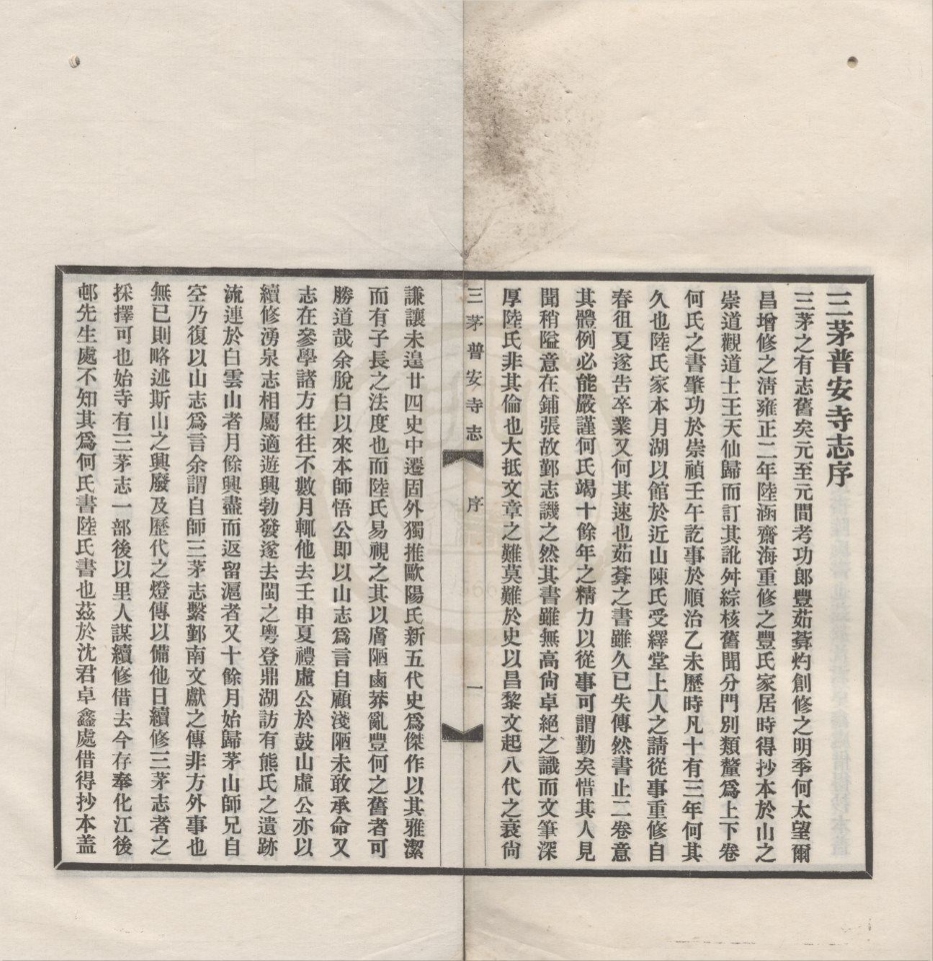 三茅普安寺志序
三茅之有志舊矣元至元間考功郎豐茹葊灼創修之明季何太望爾
昌增修之清雍正二年陸涵齋海重修之豐氏家居時得抄本於山之
崇道觀道士王天仙歸而訂其訛舛綜核舊聞分門別類釐爲上下卷
何氏之書肇功於崇禎壬午訖事於順治乙未歷時凡十有三年何其
久也陸氏家本月湖以館於近山陳氏受繹堂上人之請從事重修自
春徂夏遂吿卒業又何其速也茹葊之書雖久已失傳然書止二卷意
其體例必能嚴謹何氏竭十餘年之精力以從事可謂勤矣惜其人見
聞稍隘意在鋪張故鄞志譏之然其書雖無高尙卓絕之識而文筆深
厚陸氏非其倫也大抵文章之難莫難於史以昌黎文起八代之衰尙
三茅普安寺志 序 一
謙讓未遑廿四史中遷固外獨推歐陽氏新五代史爲傑作以其雅潔
而有子長之法度也而陸氏易視之其以膚陋鹵莽亂豐何之舊者可
勝道哉余脫白以來本師悟公即以山志爲言自顧淺陋未敢承命又
志在參學諸方往往不數月輒他去壬申夏禮虛公於鼓山虛公亦以
續修湧泉志相屬適遊興勃發遂去閩之粵登鼎湖訪有熊氏之遺跡
流連於白雲山者月餘興盡而返留滬者又十餘月始歸茅山師兄自
空乃復以山志爲言余謂自師三茅志繫鄞南文獻之傳非方外事也
無已則略述斯山之興廢及歷代之燈傳以備他日續修三茅志者之
採擇可也始寺有三茅志一部後以里人謀續修借去今存奉化江後
邨先生處不知其爲何氏書陸氏書也茲於沈君卓鑫處借得抄本盖